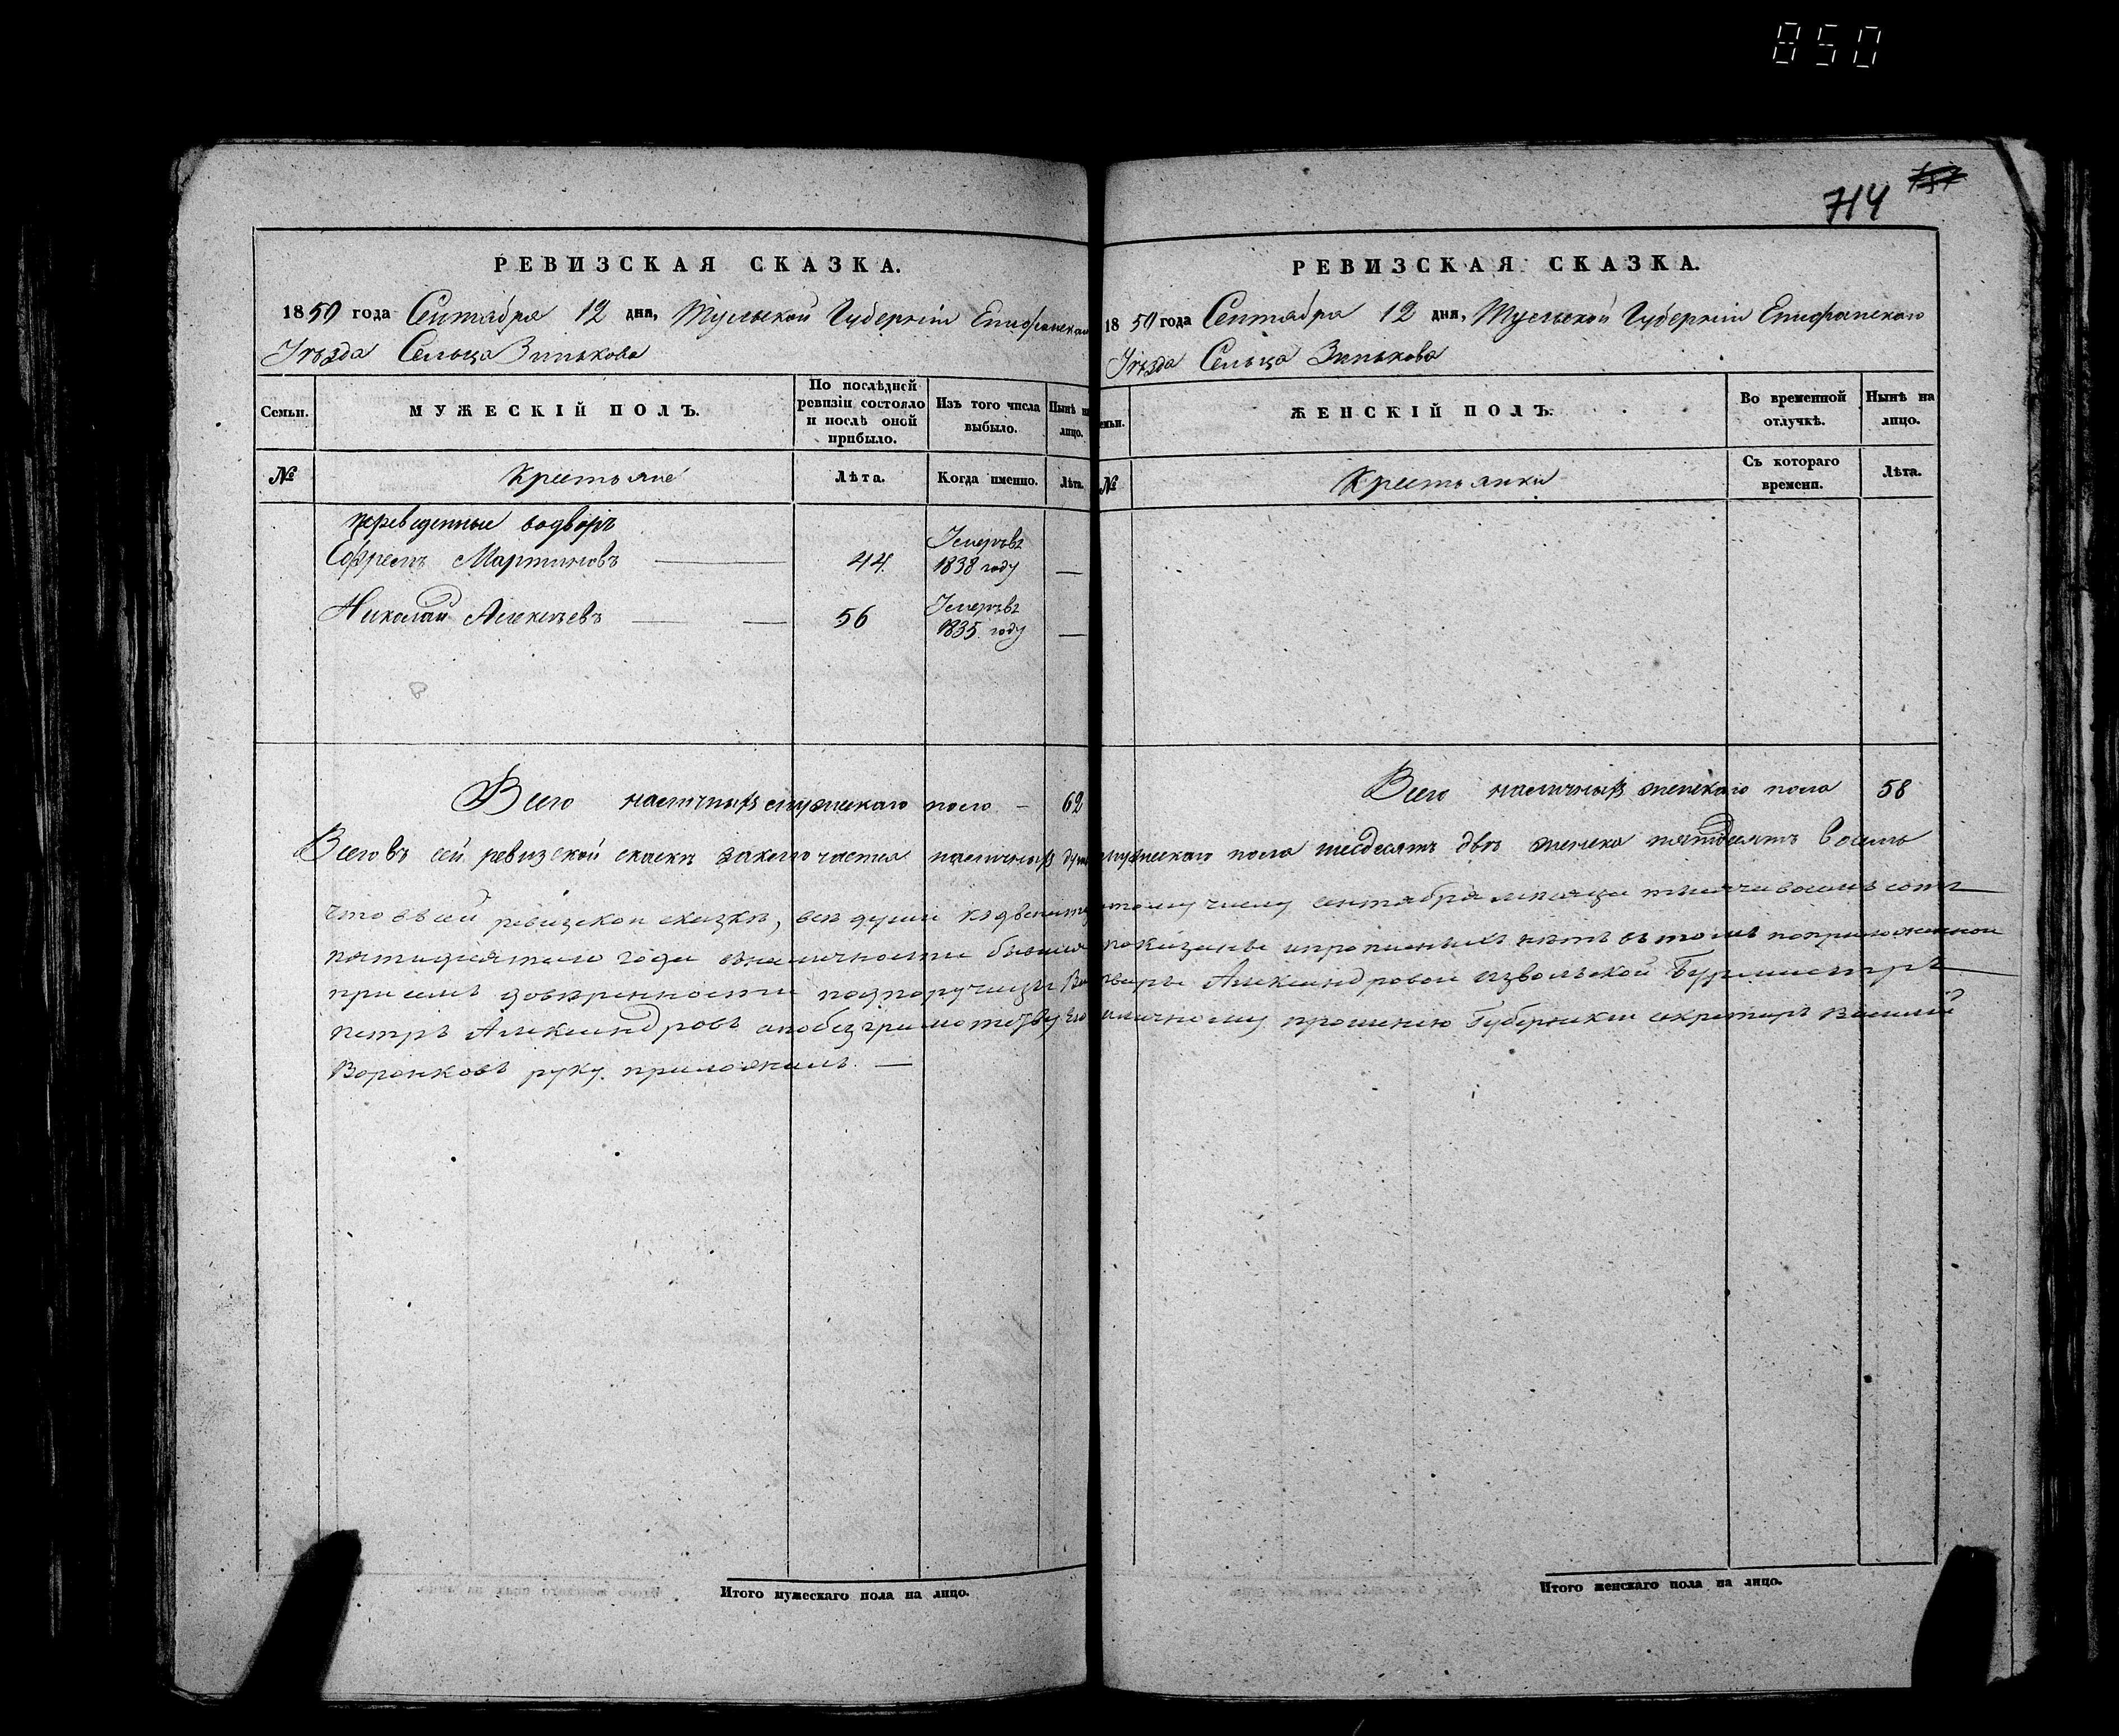 850
714
РЕВИЗСКАЯ СКАЗКА.
1850 года Сентября 12 дня, Тульской Губернiи Епифанскаго
Уѣзда Сельца Зинькова
Семьи.
МУЖЕСКIЙ ПОЛЪ.
По послѣдней ревизiи состояло и послѣ оной прибыло.
Изъ того числа выбыло.
Нынѣ на лицо.
№
Крестьяне
Лѣта.
Когда именно.
Лѣта.
переведенные водворъ
Ефремъ Мартиновъ 44. Умеръвъ 1838 году —
Николай Алексѣевъ 56 Умеръвъ 1835 году —
Всего наличныхъ мужескаго пола — 62
РЕВИЗСКАЯ СКАЗКА.
1850 года Сентября 12 дня, Тульской Губернiи Епифанскаго
Уѣзда Сельца Зинькова
Семьи.
ЖЕНСКIЙ ПОЛЪ.
Во временной отлучкѣ.
Нынѣ на лицо.
№
Крестьянки
Съ котораго времени.
Лѣта.
Всего наличныхъ женскаго пола 58
Всего въ сей ревизской скаскѣ заключается наличныхъ душъ мужескаго пола шесдесятъ двѣ женска пятьдесятъ восемь
Что въ сей ревизской сказкѣ, всѣ души къ двенатцатому числу сентября месяца тысяча восемь сотъ
пятидесятаго года въ наличности бывшия показаны и прописныхъ нѣтъ въ томъ по приложенной
при семъ довѣренности подпоручицы Варвары Александровой Извольской Бурмистръ
Петръ Александровъ а по безграмотству его и личному прошению Губернскии секретарь Василий
Воронковъ руку приложилъ. —
Итого мужескаго пола на лицо.
Итого женскаго пола на лицо.